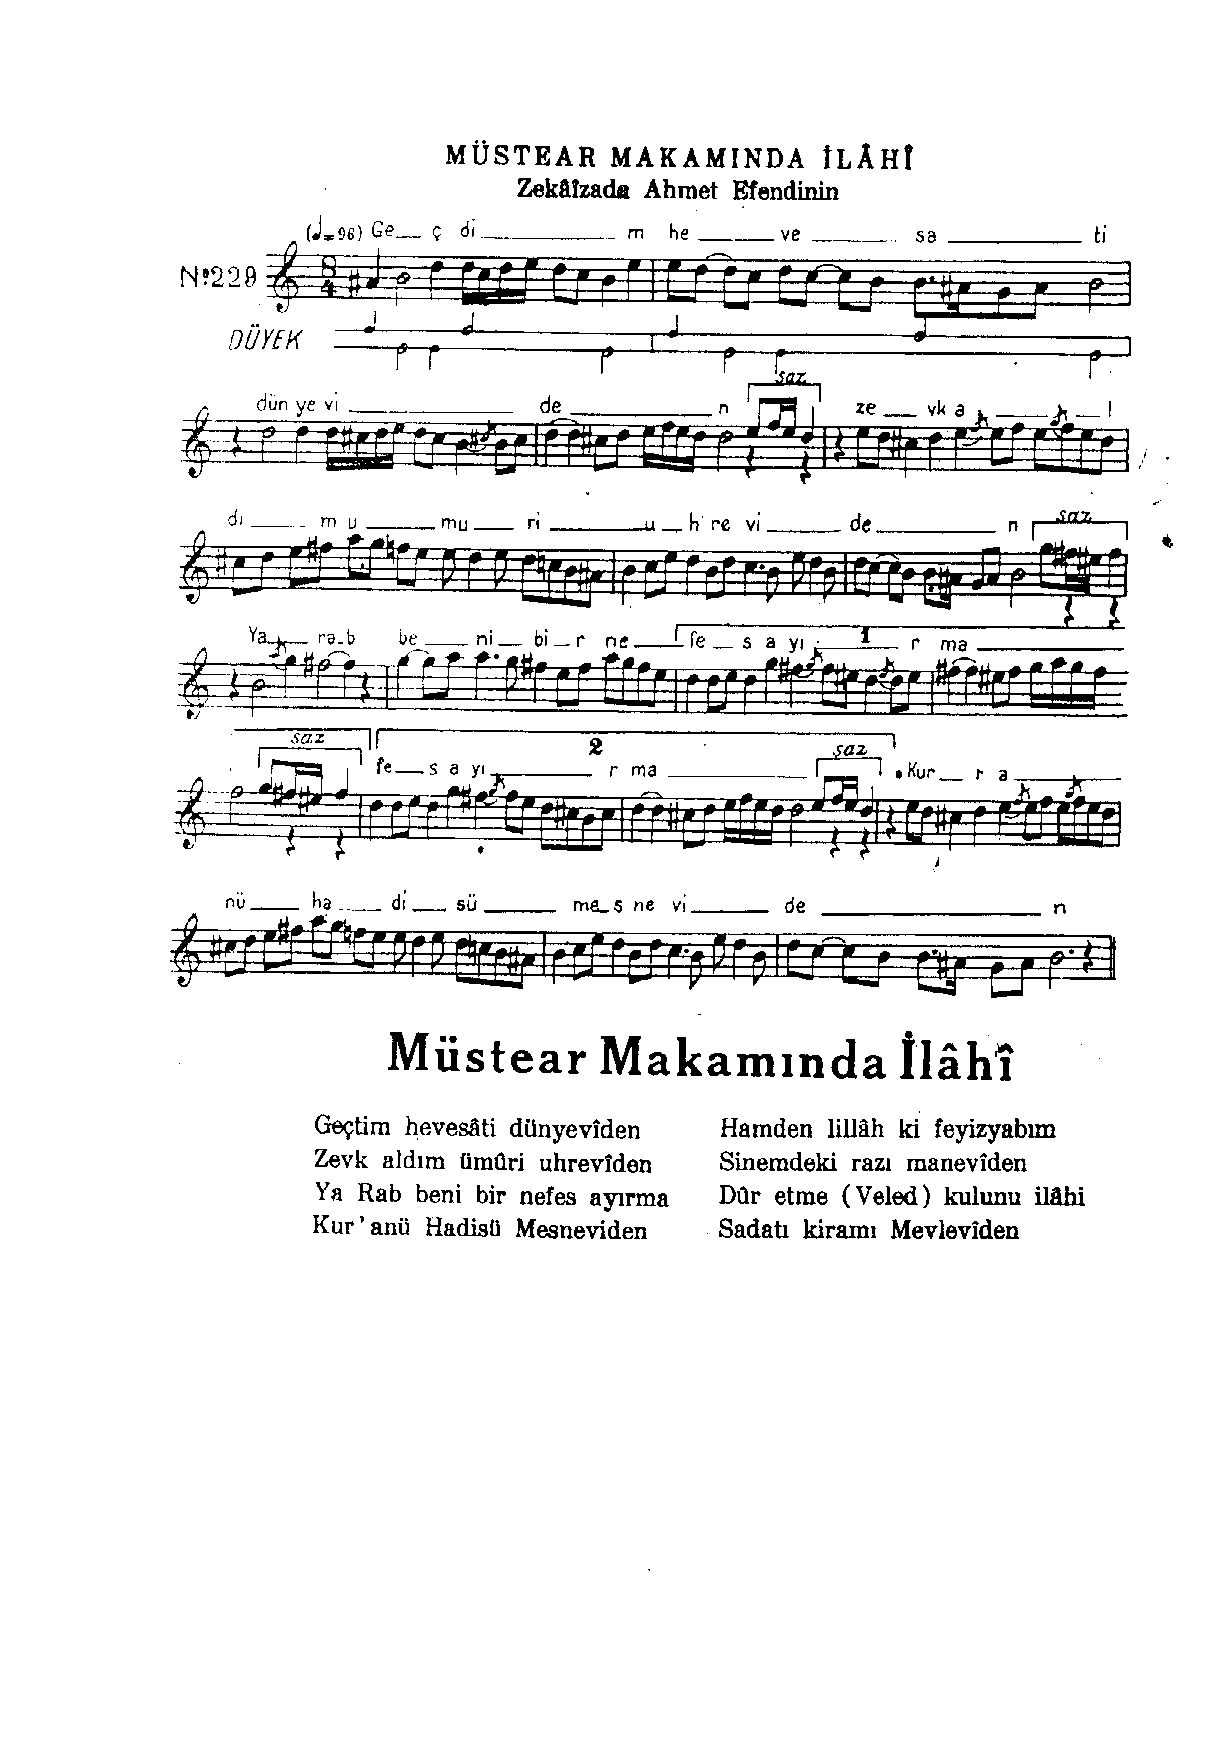 MÜSTEAR MAKAMINDA İLÂHÎ
Zekâîzada Ahmet Efendinin
(♩=96) Ge__ ç di ________ m he ____ ve ____ sa ______ ti
Nº229 8/4
DÜYEK
saz
dün ye vi ________ de ________ n ze __ vk a __ __ __ l
dı ____ m u ____ mu __ ri ____ u __ h re vi ____ de ______ n saz
Ya __ ra_b be __ ni _ bi _ r ne __ fe _ s a yı 1 __ r ma ________
saz 2 saz
fe _ s a yı ____ r ma ________ Kur _ r a ____
nü ___ ha ___ di __ sü ____ me_s ne vi ____ de ________ n
Müstear Makamında İlâhî
Geçtim hevesâti dünyevîden
Zevk aldım ümûri uhrevîden
Ya Rab beni bir nefes ayırma
Kur'anü Hadisü Mesneviden
Hamden lillâh ki feyizyabım
Sinemdeki razı manevîden
Dûr etme (Veled) kulunu ilâhi
Sadatı kiramı Mevlevîden